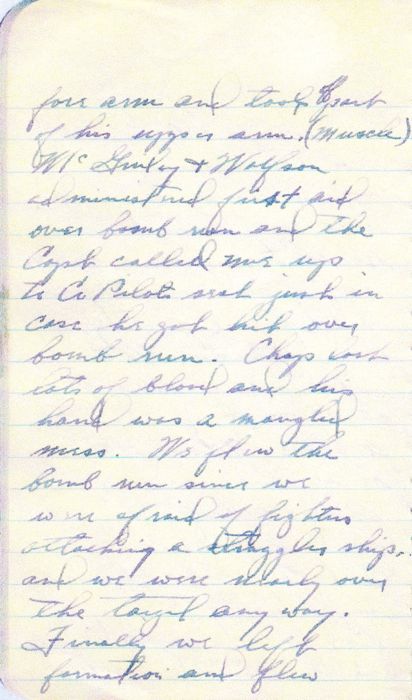 fore arm and took part
of his upper arm. (Muscle)
Mc Ginley + Wolfson
administred first aid
over bomb run and the
Capt called me up
to Co Pilots seat just in
case he got hit over
bomb run. Chap lost
lots of blood and his
hand was a mangled
mess. We flew the
bomb run since we
were afraid of fighters
attacking a straggler ship,
and we were nearly over
the target any way.
Finally we left
formation and flew